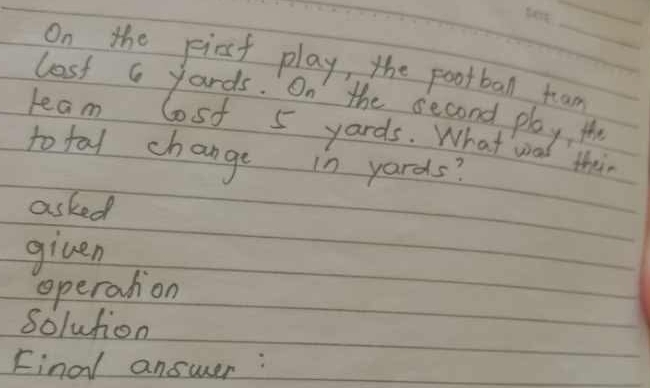 DATE
On the first play, the football team
lost 6 yards. On the second play, the
team lost 5 yards. What was their
total change in yards?
asked
given
operation
Solution
Final answer :